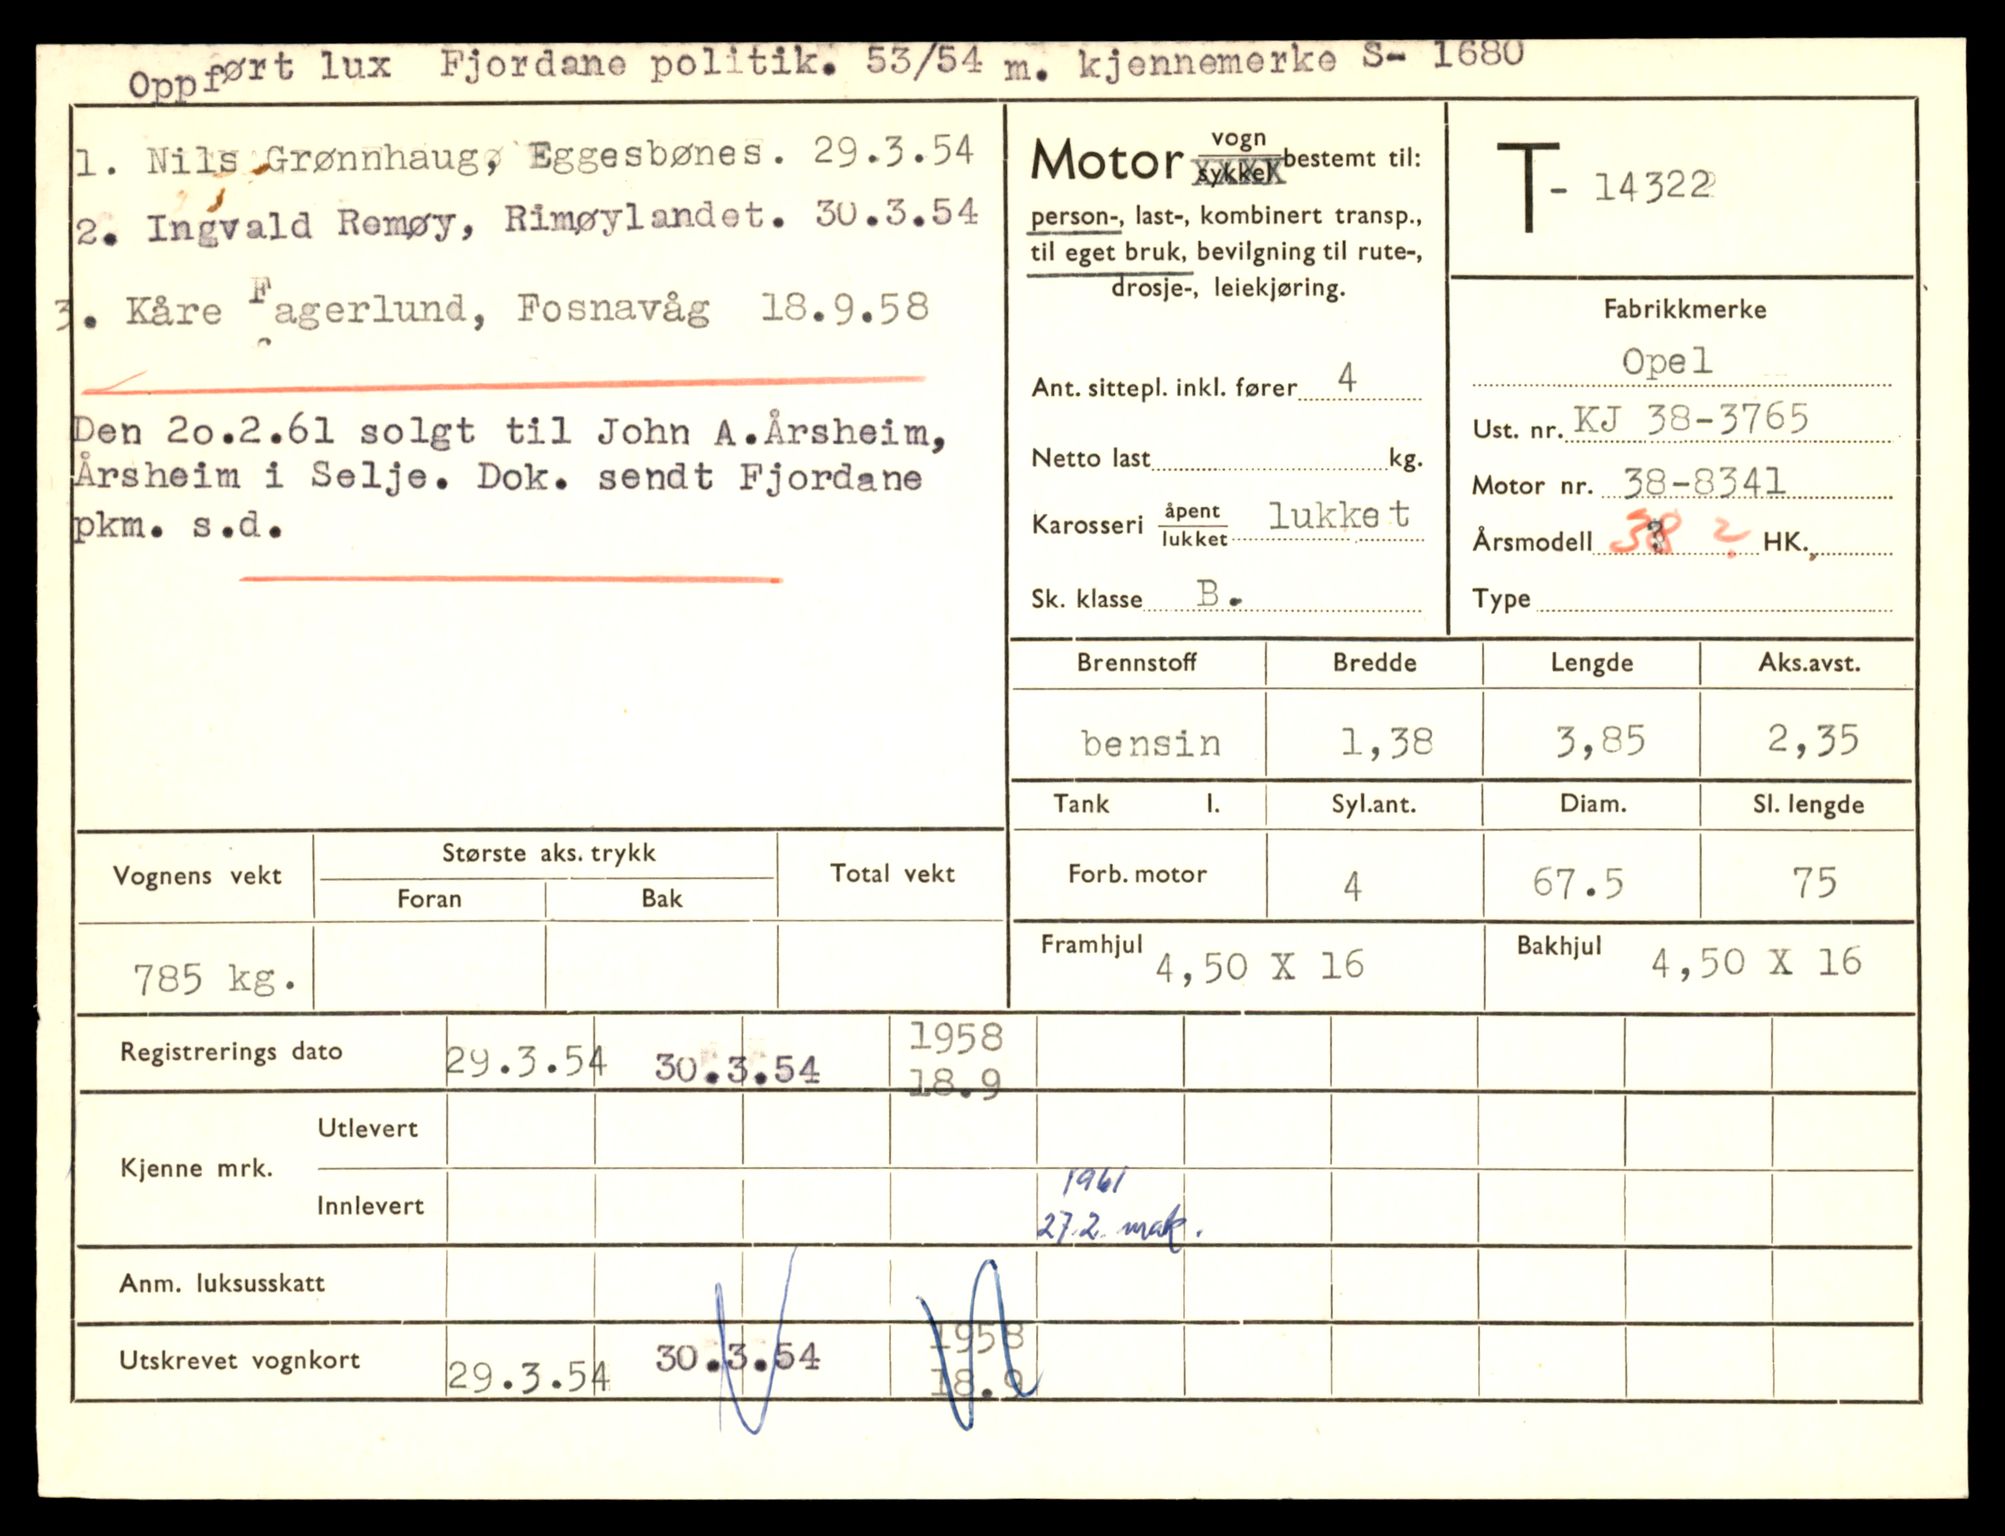 Oppført lux Fjordane politik. 53/54 m. kjennemerke S- 1680
1. Nils Grønnhaug, Eggesbønes. 29.3.54
2. Ingvald Remøy, Rimøylandet. 30.3.54
3. Kåre Fagerlund, Fosnavåg 18.9.58
Den 2o.2.61 solgt til John A.Årsheim,
Årsheim i Selje. Dok. sendt Fjordane
pkm. s.d.
Motor vogn sykkel bestemt til:
person-, last-, kombinert transp.,
til eget bruk, bevilgning til rute-,
drosje-, leiekjøring.
Ant. sittepl. inkl. fører 4
Netto last kg.
Karosseri åpent lukket lukket
Sk. klasse B.
T- 14322
Fabrikkmerke
Opel
Ust. nr. KJ 38-3765
Motor nr. 38-8341
Årsmodell 38 ? HK.
Type
Brennstoff Bredde Lengde Aks.avst.
bensin 1,38 3,85 2,35
Tank l. Syl.ant. Diam. Sl. lengde
Forb. motor 4 67.5 75
Framhjul 4,50 X 16 Bakhjul 4,50 X 16
Vognens vekt Største aks. trykk Total vekt
Foran Bak
785 kg.
Registrerings dato 29.3.54 30.3.54 1958 18.9
Kjenne mrk. Utlevert
Innlevert 1961 27.2. mak.
Anm. luksusskatt
Utskrevet vognkort 29.3.54 30.3.54 1958 18.9